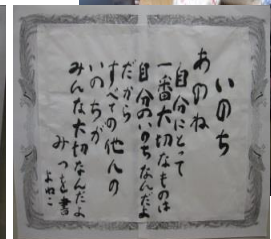 いのち
あのね
自分にとって
一番大切なものは
自分のいのちなんだよ
だから
すべての他人の
いのちが
みんな大切なんだよ
みつを書
よねこ